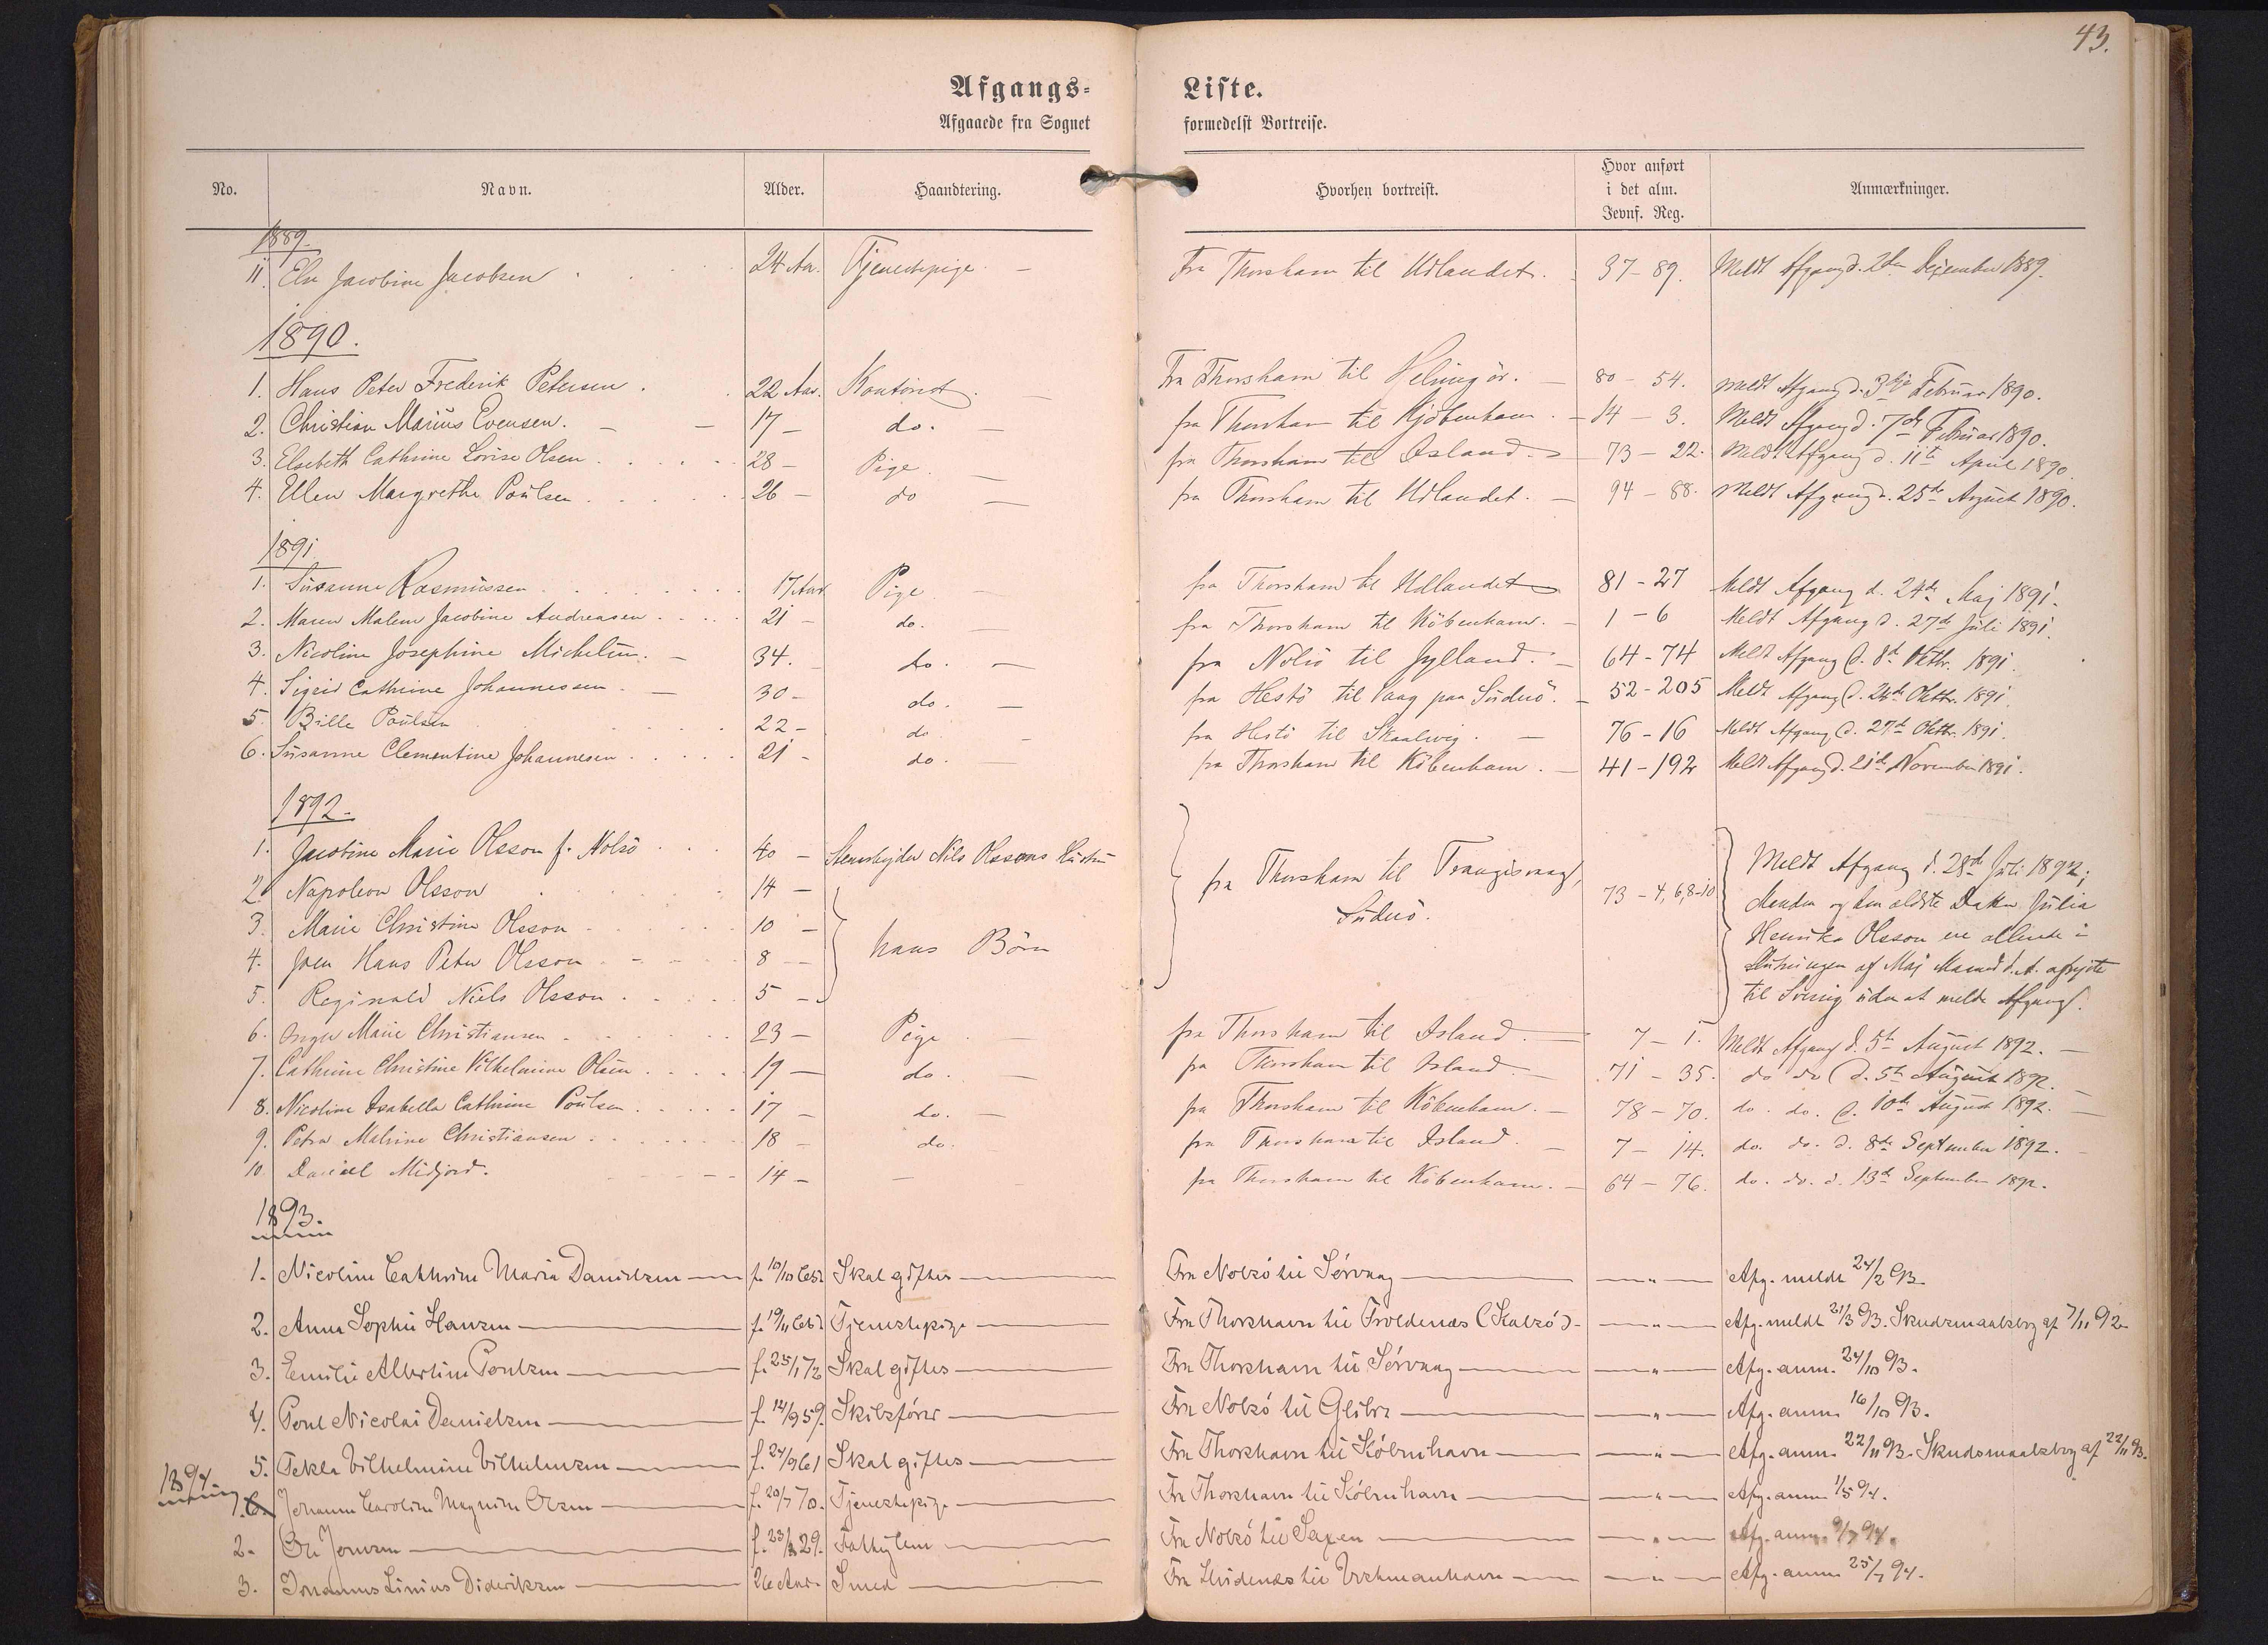 43.
Afgangs= Liste.
Afgaaede fra Sognet formedelst Bortreise.
No. Navn. Alder. Haandtering. Hvorhen bortreist. Hvor anført i det alm. Jevnf. Reg. Anmærkninger.
1889.
11. Else Jacobine Jacobsen 24 Aar. Tjenestepige. Fra Thorshavn til Udlandet. 37-89. Meldt Afgang d. 2den Dezember 1889.
1890.
1. Hans Peter Frederik Petersen. 22 Aar. Kontorist Fra Thorshavn til Helsingör. 80-54. Meldt Afgang d. 3die Februar 1890.
2. Christian Marius Evensen. 17 - do. fra Thorshavn til Kjöbenhavn. 14-3. Meldt Afgang d. 7de Februar 1890.
3. Elsebeth Cathrine Lovise Olsen 28 - Pige. fra Thorshavn til Island. 73-22. Meldt Afgang d. 11te April 1890.
4. Ellen Margrethe Poulsen 26 - do fra Thorshavn til Udlandet. 94-88. Meldt Afgang d. 25de August 1890.
1891
1. Susanne Rasmussen 17 Aar Pige fra Thorshavn til Udlandet 81-27 Meldt Afgang d. 24de Maj 1891.
2. Maren Malene Jacobine Andreasen 21 - do. fra Thorshavn til Köbenhavn. 1-6 Meldt Afgang d. 27de Juli 1891.
3. Nicoline Josephine Michelsen. 34. do. fra Nolsö til Jylland. 64-74 Meldt Afgang d. 8de Oktbr. 1891.
4. Sigrid Cathrine Johannessen 30 - do. fra Hestö til Vaag paa Süderö. 52-205 Meldt Afgang d. 24de Oktbr. 1891.
5. Bille Poulsen 22 - do fra Hestö til Skaalevig. 76-16 Meldt Afgang d. 27de Oktbr. 1891.
6. Susanne Clementine Johannesen 21 - do. fra Thorshavn til Köbenhavn. 41-192 Meldt Afgang d. 21de November 1891.
1892.
1. Jacobine Marie Olsson f. Nolsö 40 - Stenarbejder Nils Olssons Hustru
2. Napoleon Olsson 14 -
3. Marie Christine Olsson 10 -
4. Joen Hans Peter Olsson 8 -
5. Reginald Niels Olsson 5 -
hans Börn
fra Thorshavn til Trangisvaag, Süderö.
73-4,6,8-10
Meldt Afgang d. 28de Juli 1892;
Manden og den ældste Datter Julia
Henrika Olsson ere allerede i
Slutningen af Maj Maaned d. A. afrejste
til uden at melde Afgang.
6. Inger Marie Christiansen 23 - Pige fra Thorshavn til Island 7-1. Meldt Afgang d. 5te August 1892.
7. Cathrine Christine Vilhelmine Olsen 19 - do. fra Thorshavn til Island. 71-35. do do d. 5te August 1892.
8. Nicoline Isabella Cathrine Poulsen 17 - do. fra Thorshavn til Köbenhavn. 78-70. do. do. d. 10de August 1892.
9. Petra Malvine Christiansen 18 - do. fra Thorshavn til Island. 7-14. do. do. d. 8de September 1892.
10. Daniel Midjord. 14 - fra Thorshavn til Köbenhavn. 64-76. do. do. d. 13de September 1892.
1893.
1. Nicoline Cathrine Maria Danielsen f. Skal giftes Fra Nolsö til Sörvaag - " - Afg. meldt 24/2 93.
2. Anna Sophie Hansen f. 19/11 Tjenestepige Fra Thorshavn til Troldenæs (Kalsö). - " - Afg. meldt 21/3 93. Skudsmaalsbog af 7/11 92
3. Emilie Albertine Poulsen f. 25/1 72 Skal giftes Fra Thorshavn til Sörvaag - " - Afg. anm. 24/10 93.
4. Poul Nicolai Danielsen f. 14/9 59. Skibsförer Fra Nolsö til Glibre - " - Afg. anm. 16/10 93.
5. Tekla Vilhelmine Vilhelmsen f. 24/9 61 Skal giftes Fra Thorshavn til Köbenhavn - " - Afg. anm. 22/11 93. Skudsmaalsbog af 22/11 93.
1894.
1. Johanne Caroline Magnine Olsen f. 20/7 70. Tjenestepige Fra Thorshavn til Köbenhavn - " - Afg. anm. 1/5 94.
2. Ole Joensen 29. Fattiglem Fra Nolsö til Saxen - " - Afg. anm. 9/7 94.
3. Johannes Linius Dideriksen 26 Aar. Smed Fra Hvidenæs til Vestmanhavn - " - Afg. anm. 25/7 94.